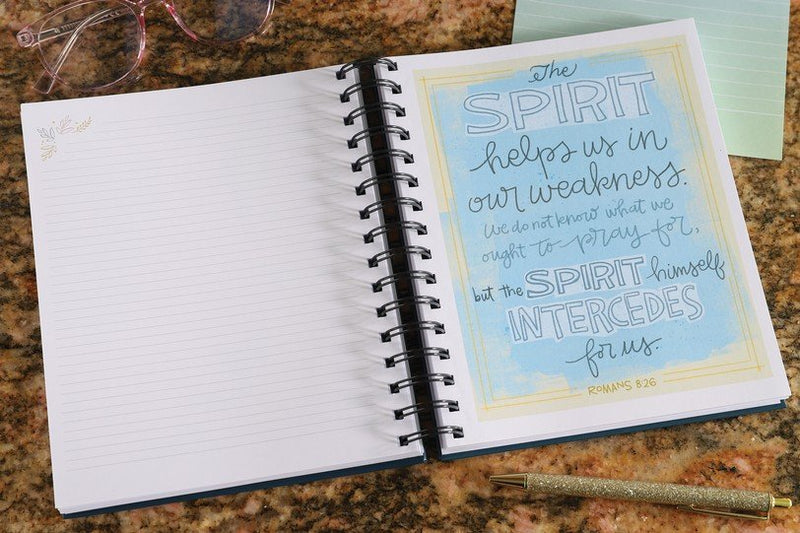 The
SPIRIT
helps us in
our weakness.
We do not know what we
ought to pray for,
but the SPIRIT himself
INTERCEDES
for us.
ROMANS 8:26